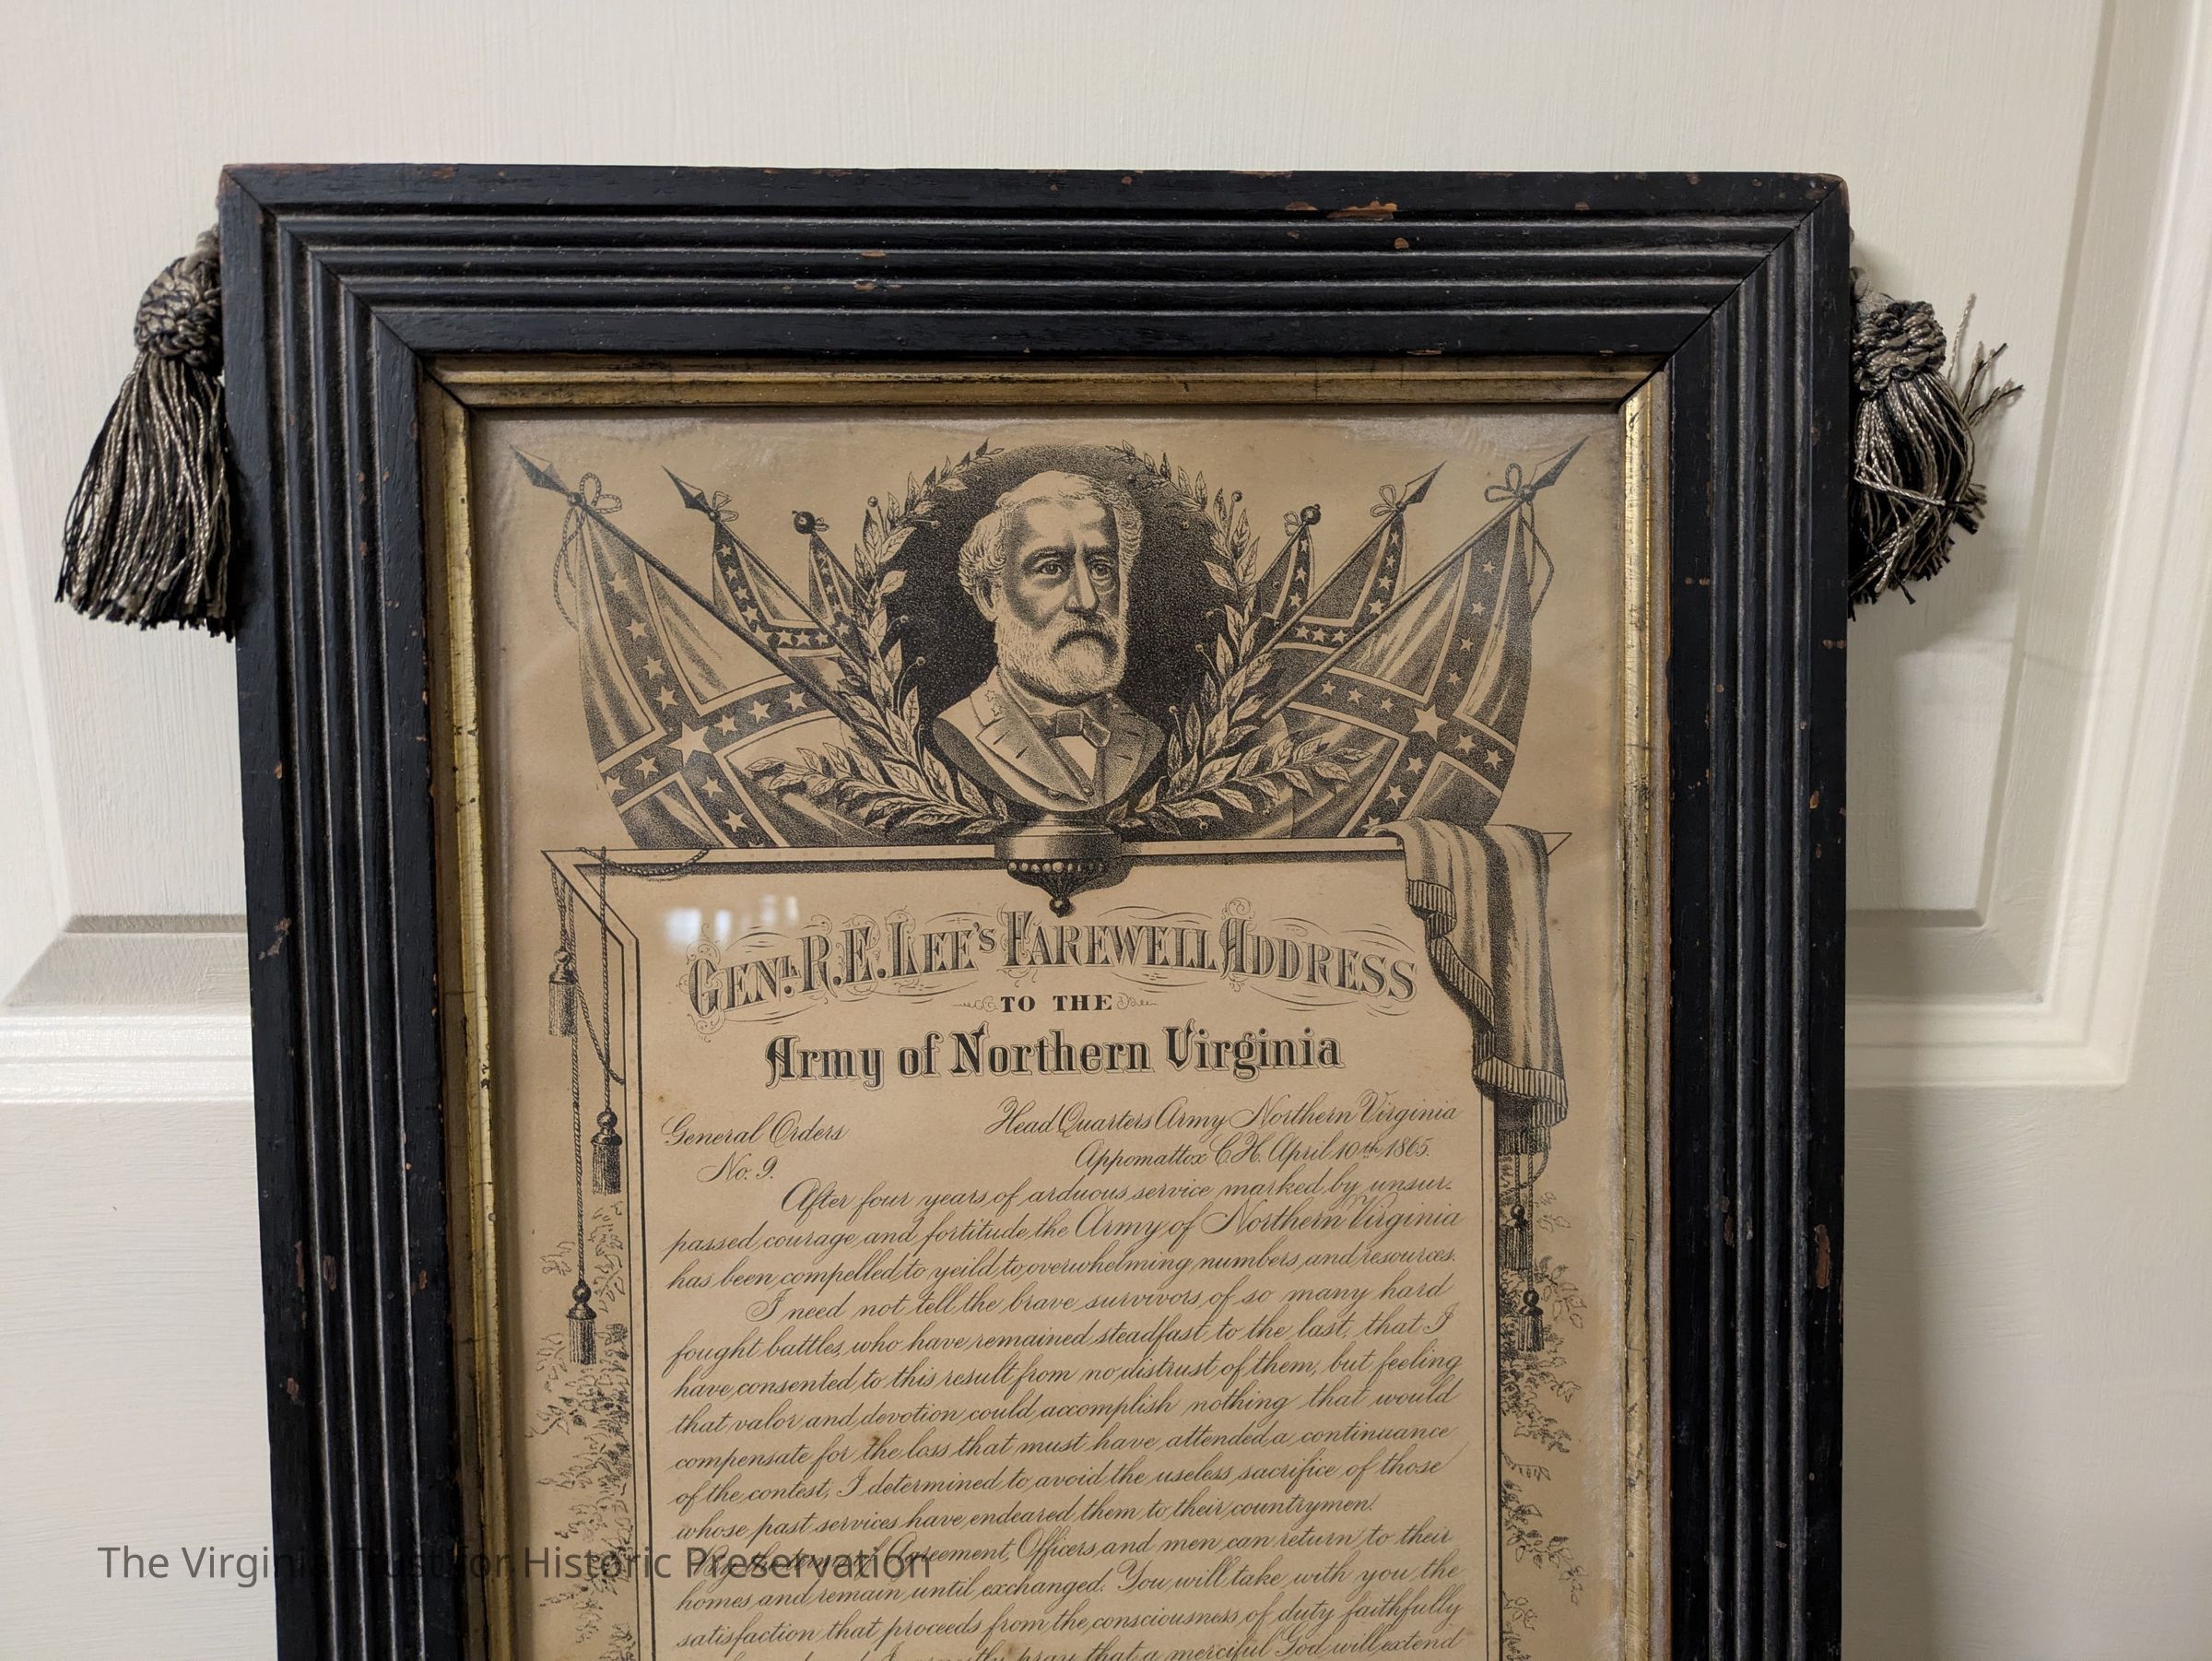 GENL. R. E. LEE'S FAREWELL ADDRESS
TO THE
Army of Northern Virginia
General Orders
No. 9.
Head Quarters Army Northern Virginia
Appomattox C. H. April 10th 1865.
After four years of arduous service marked by unsur-
passed courage and fortitude the Army of Northern Virginia
has been compelled to yeild to overwhelming numbers and resources.
I need not tell the brave survivors of so many hard
fought battles who have remained steadfast to the last, that I
have consented to this result from no distrust of them, but feeling
that valor and devotion could accomplish nothing that would
compensate for the loss that must have attended a continuance
of the contest, I determined to avoid the useless sacrifice of those
whose past services have endeared them to their countrymen!
By the terms of Agreement, Officers and men can return to their
homes and remain until exchanged. You will take with you the
satisfaction that proceeds from the consciousness of duty faithfully
pray that a merciful God will extend
The Virginia Trust for Historic Preservation